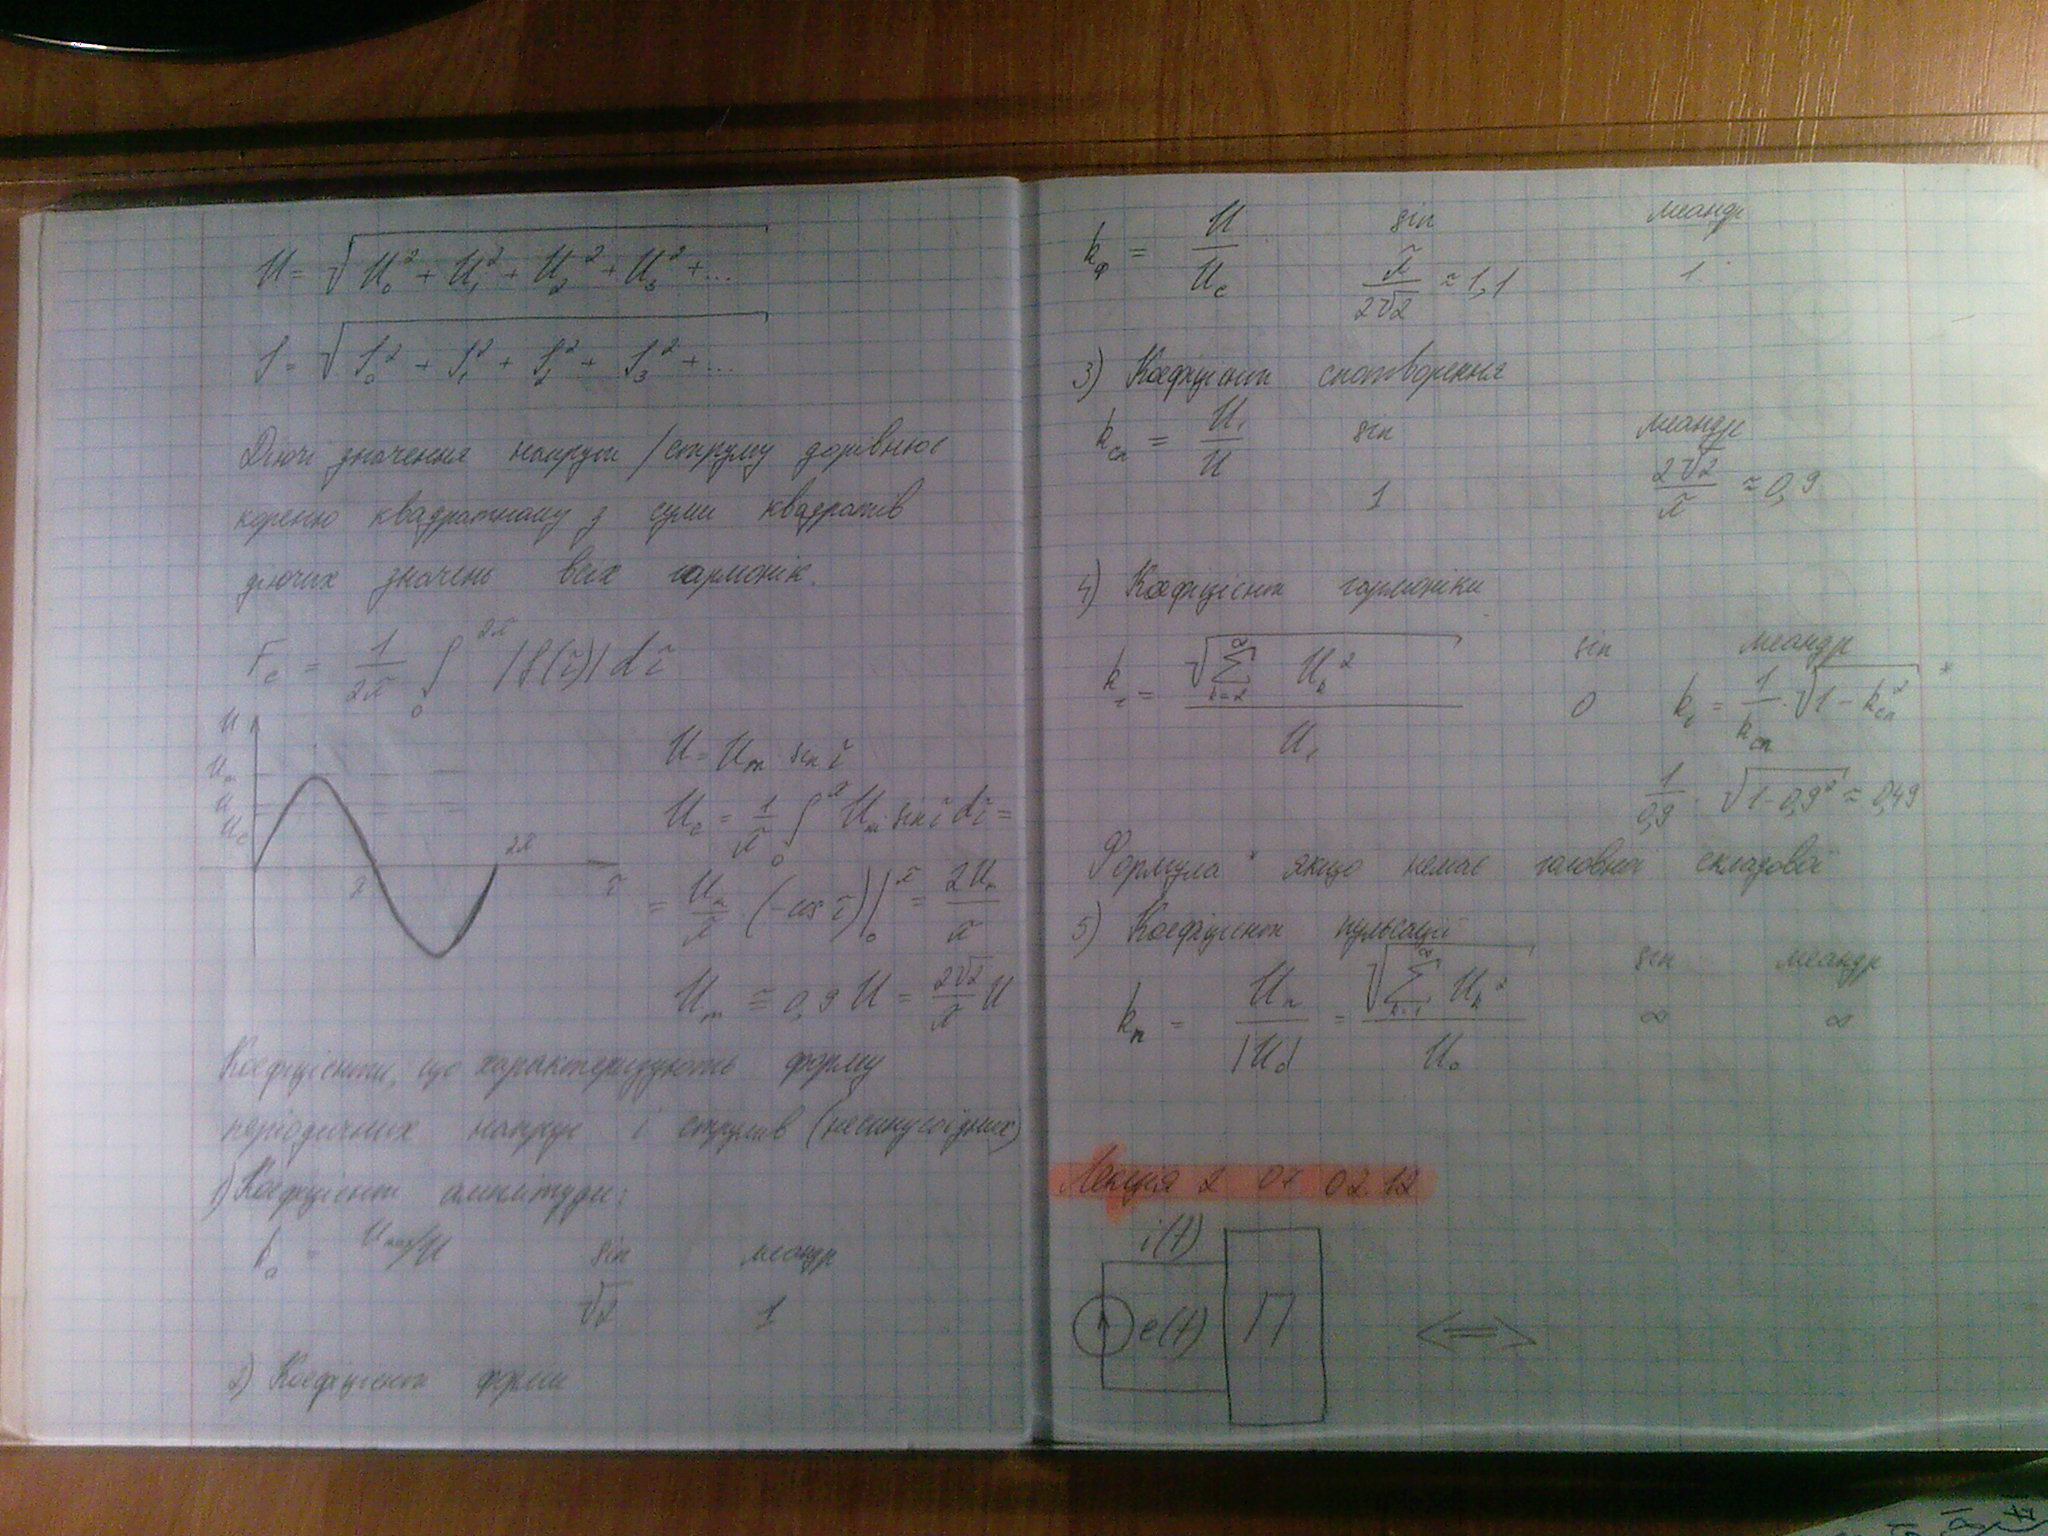 U = √(U₀² + U₁² + U₂² + U₃² + ...
I = √(I₀² + I₁² + I₂² + I₃² + ...
Діючі значення напруги /струму дорівнює
кореню квадратному з суми квадратів
діючих значень всіх гармонік.
Fс = 1/2π ∫₀^2π |f(τ)| dτ
U
Uₘ
U
Uс
π
2π
τ
U = Uₘ sin τ
Uс = 1/π ∫₀^π Uₘ sin τ dτ =
= Uₘ/π · (-cos τ)|₀^π = 2Uₘ/π
Uₘ ≅ 0,9 U = 2√2/π U
Коефіцієнти, що характеризують форму
періодичних напруг і струмів (несинусоїдних)
1) Коефіцієнт амплітуди:
kₐ = Umax/U sin меандр
√2 1
2) Коефіцієнт форми
kф = U/Uс sin меандр
π/2√2 ≈ 1,1 1
3) Коефіцієнт спотворення
kсп = U₁/U sin меандр
1 2√2/π ≈ 0,9
4) Коефіцієнт гармоніки
kг = √(∑ₖ₌₂^∞ Uₖ²)/U₁ sin меандр
0 kг = 1/kсп · √(1 - kсп²) *
1/0,9 · √(1-0,9²) ≈ 0,49
Формула * якщо немає головної складової
5) Коефіцієнт пульсації
kп = Uп/|U₀| = √(∑ₖ₌₁^∞ Uₖ²)/U₀ sin меандр
∞ ∞
Лекція 2 07 02 12
i(t)
e(t) П <=>